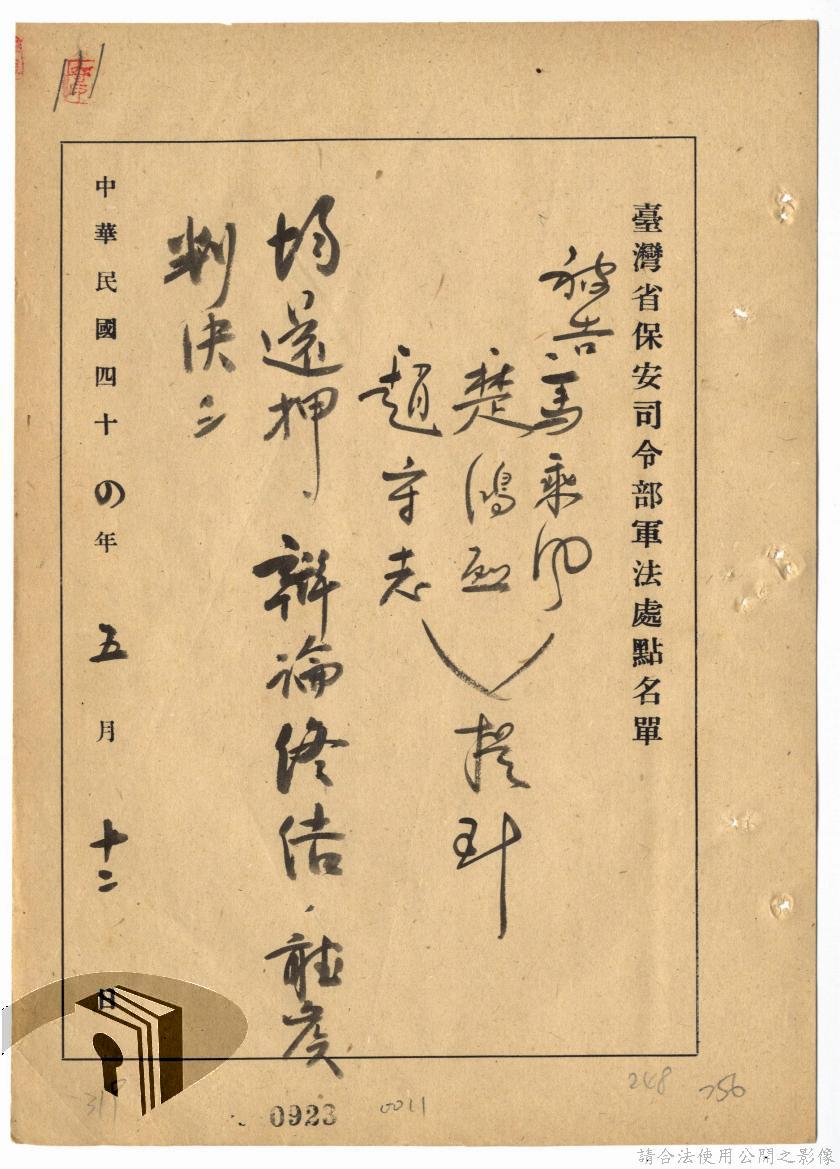 臺灣省保安司令部軍法處點名單
被告 馬乘風
楚鴻烈
趙守志
提到
均還押、辯論終結、聽候
判決
中華民國四十四年五月十二日
319
0923
0011
248
請合法使用公開之影像